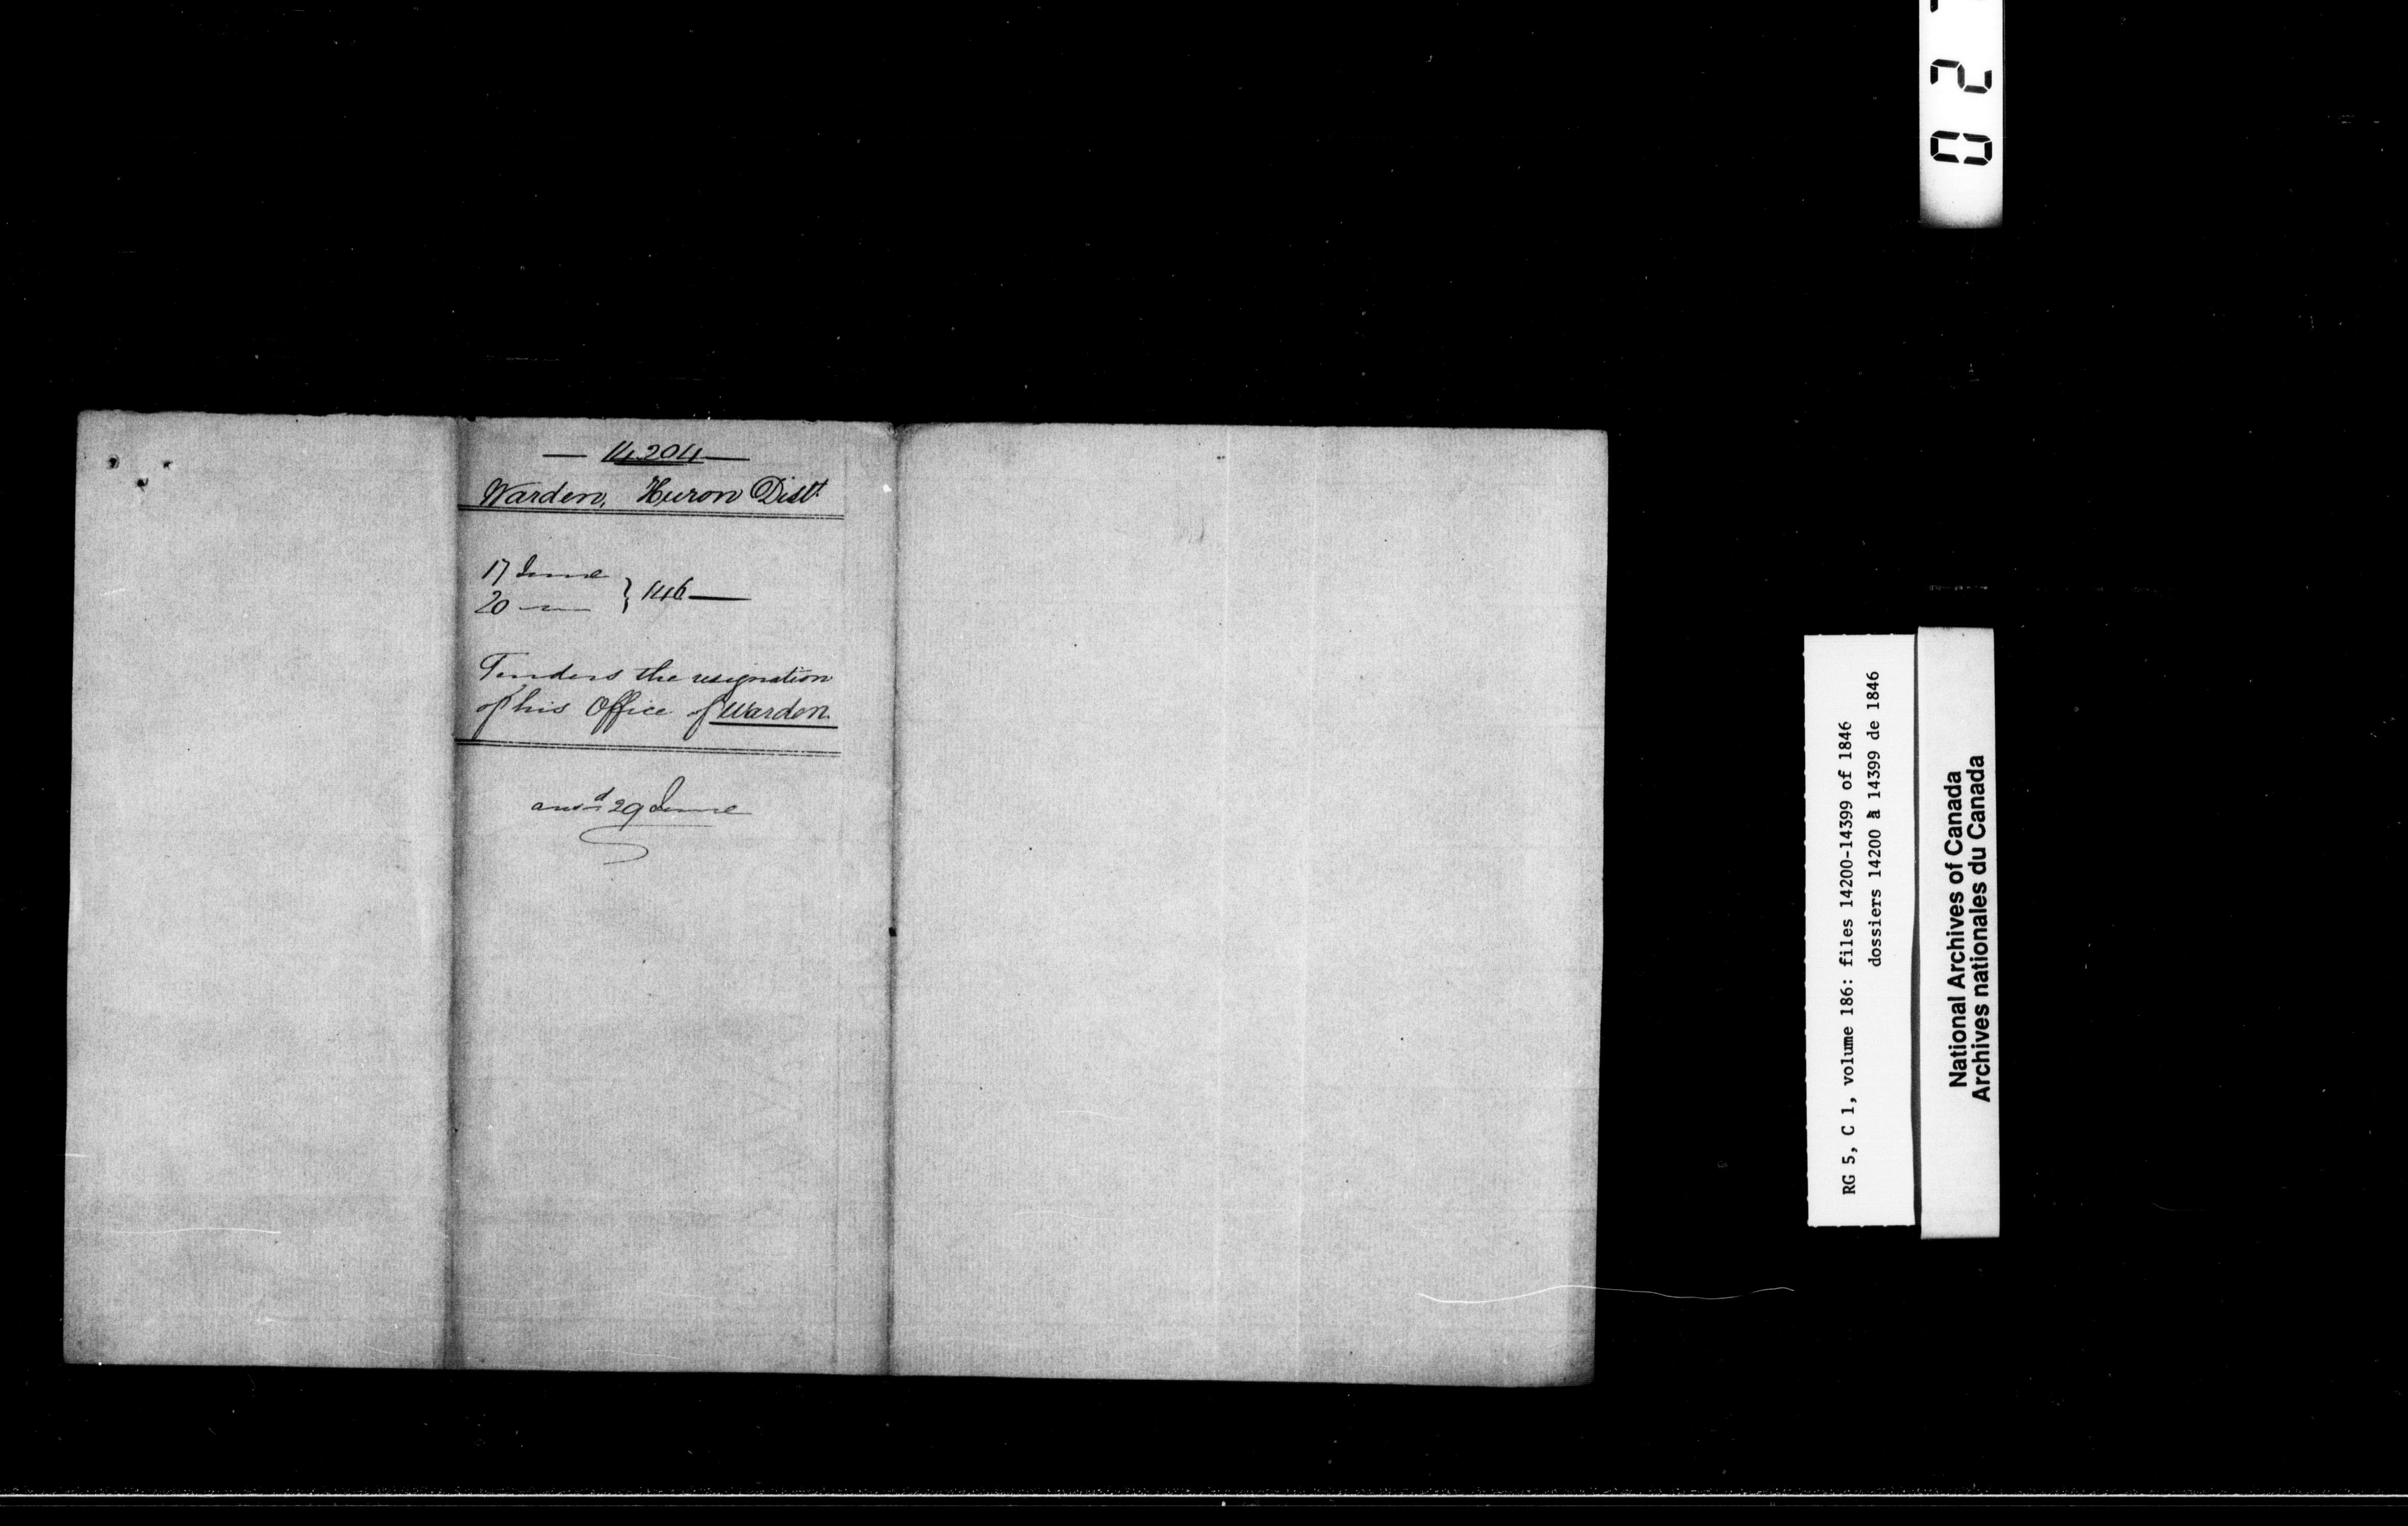 — 14204 —
Warden, Huron Distt
17 June
20 —
} 1446 —
Tenders the resignation
of his Office of Warden
ansd 29 June
RG 5, C 1, volume 186: files 14200-14399 of 1846
dossiers 14200 à 14399 de 1846
National Archives of Canada
Archives nationales du Canada
02